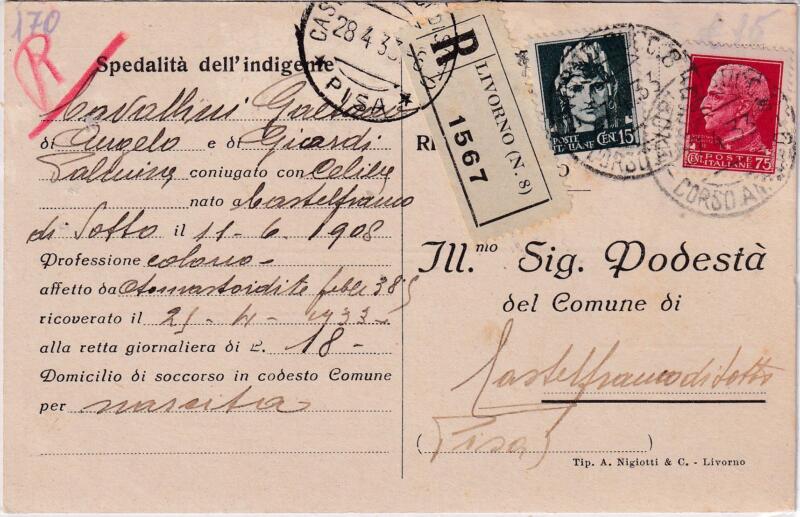 170
R
Spedalità dell'indigente
Cavallini Gaetano
di Angelo e di Giardi
Palmira coniugato con Celibe
nato a Castelfranco
di Sotto il 11-6-1908
Professione colono
affetto da otomastoidite febb. 38,5
ricoverato il 25-4-1933
alla retta giornaliera di L. 18-
Domicilio di soccorso in codesto Comune
per nascita
28.4.33
PISA
R
LIVORNO (N. 8)
1567
POSTE
ITALIANE CENT 15
POSTE
ITALIANE
CENT 75
CORSO
CORSO
Ill.mo Sig. Podestà
del Comune di
Castelfranco di Sotto
(Pisa)
Tip. A. Nigiotti & C. - Livorno